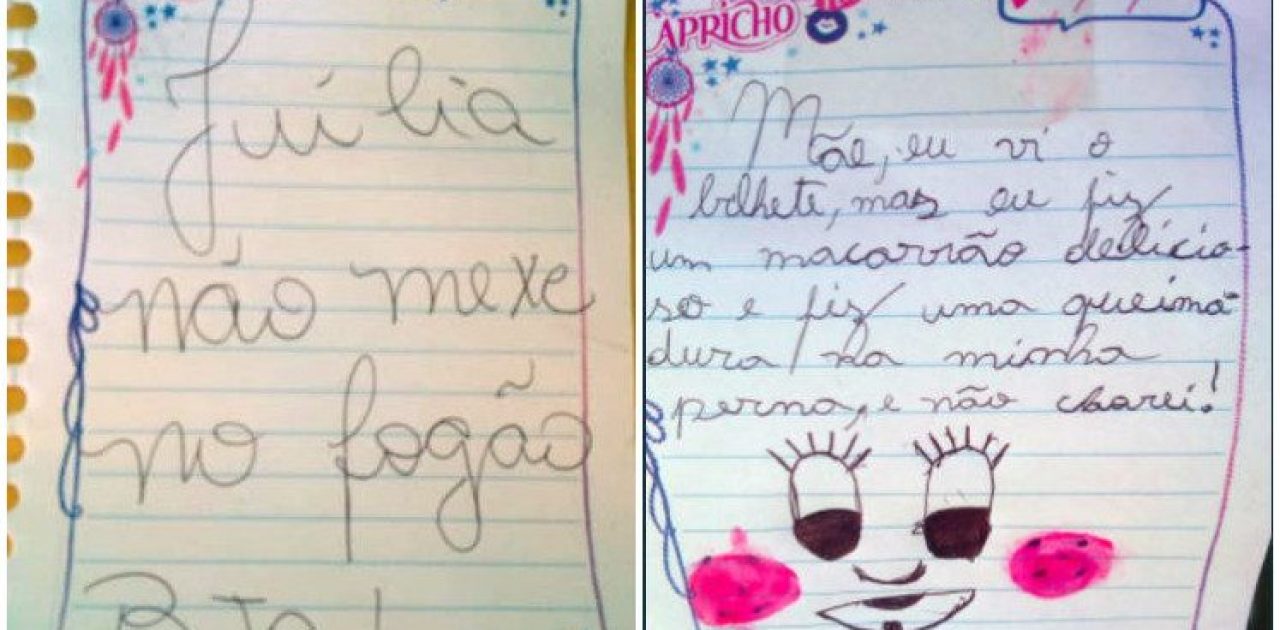 Júlia
não mexe
no fogão
APRICHO
Mãe, eu vi o
bilhete, mas eu fiz
um macarrão delicio-
so e fiz uma queima-
dura na minha
perna, e não chorei!